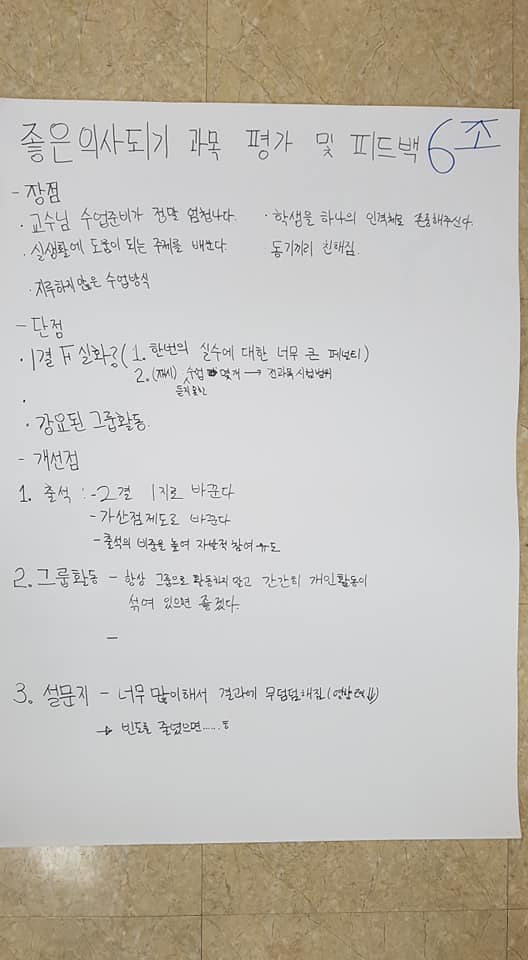 좋은의사되기 과목 평가 및 피드백 6조
- 장점
· 교수님 수업준비가 정말 엄청나다.
· 학생을 하나의 인격체로 존중해주신다.
· 실생활에 도움이 되는 주제를 배운다.
동기끼리 친해짐.
· 지루하지 않은 수업방식
- 단점
· 1결 F 실화? (1. 한번의 실수에 대한 너무 큰 페널티)
2. (재시) 수업 몇개 → 전과목 시험범위
듣지못한
·
· 강요된 그룹활동.
- 개선점
1. 출석 : - 2결 1지로 바꾼다
- 가산점제도로 바꾼다
- 출석의 비중을 높여 자발적 참여 유도
2. 그룹활동 - 항상 그룹으로 활동하지 말고 간간히 개인활동이
섞여 있으면 좋겠다.
-
3. 설문지 - 너무 많이해서 결과에 무덤덤해짐
→ 빈도를 줄였으면......